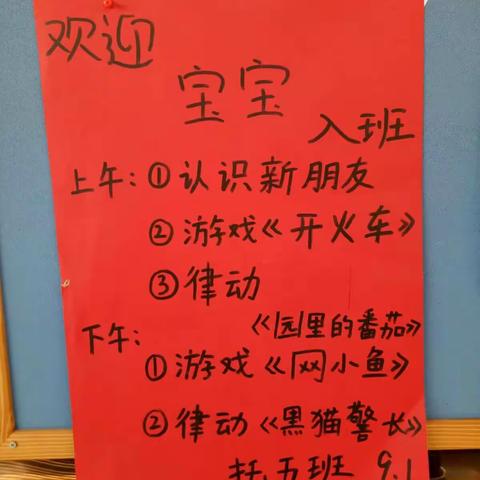 欢迎
宝宝
入班
上午：①认识新朋友
②游戏《开火车》
③律动
《园里的番茄》
下午：
①游戏《网小鱼》
②律动《黑猫警长》
托五班 9.1